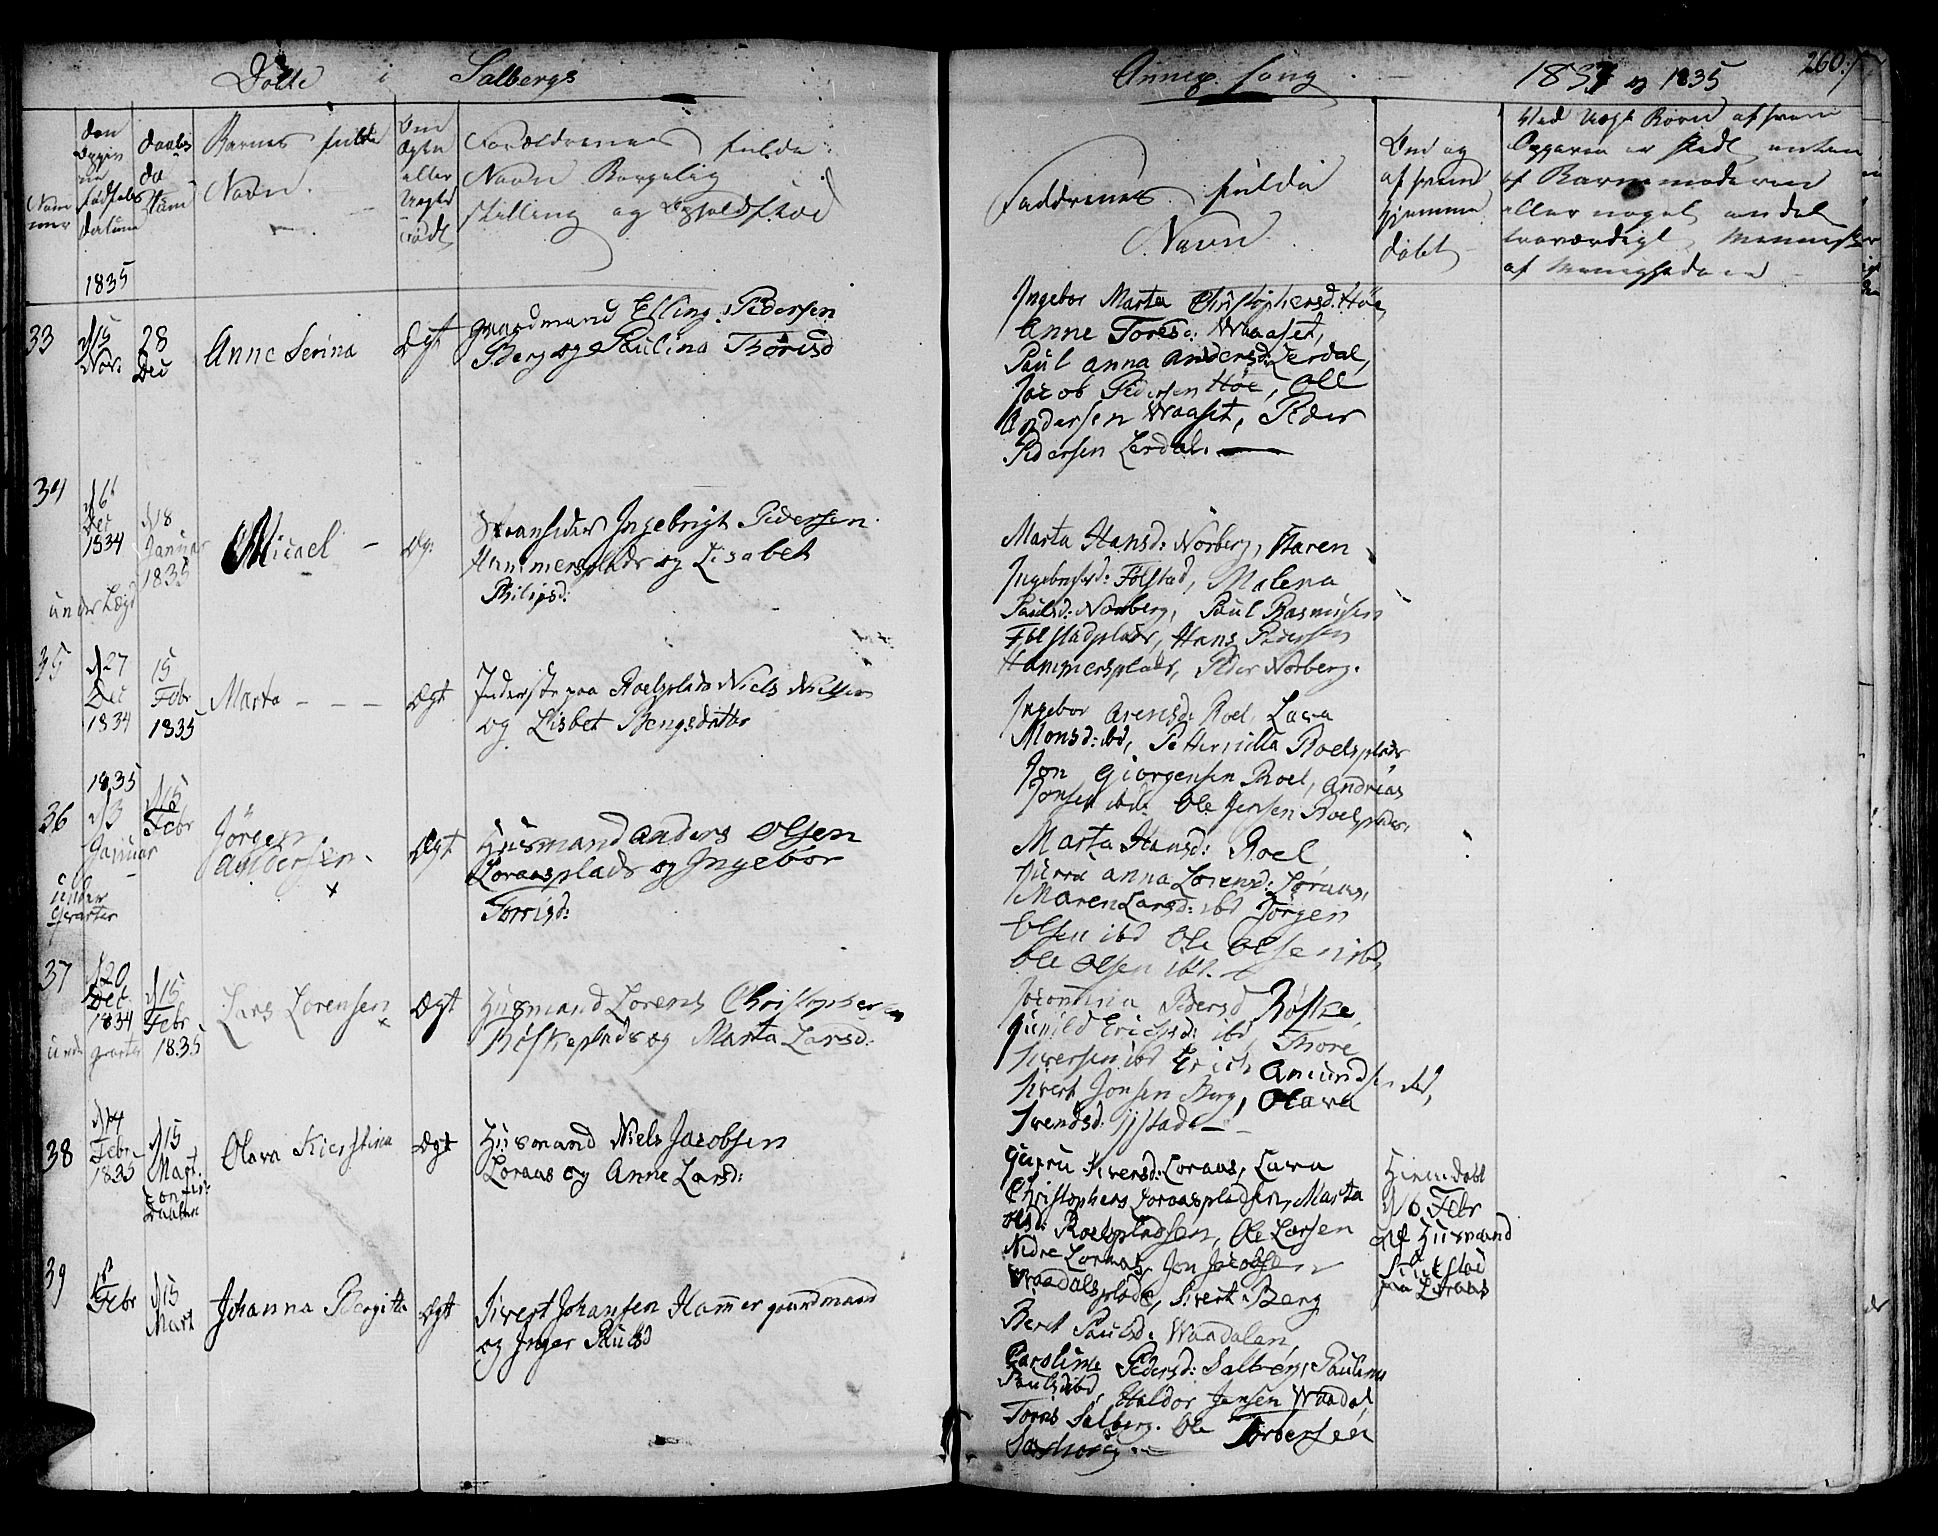 Døbte i Salbergs
Annex Song. 1834 og 1835 260.
Num
mer
den
datum
Daabs
da
tum
Barnets fulde
Navn.
Om
Ægte
eller
Uægte
født
Forældrenes fulde
Navn Borgelig
stilling og Opholdsstæd
Faddernes fulde
Navn
Om og
af hvem
hjemme
døbt
Ved Uægt Børn af hvem
Opgaven er skedt, enten
af Barnemoderen
eller noget andet
troværdigt Menneske
af Menigheden
1835
33
d 15
Nov:
28
Dec
Anne Serina
Ægt
Gaardmand Elling Pedersen
Berg og Paulina Thorisd
Ingebor Marta Christophersd. Høe
Anne Toresd: Waaset,
Paul Anna Andersd: Lerdal,
Jacob Pedersen Høe, Ole
Andersen Waaset, Peder
Pedersen Lerdal.
34
d 6t
Dec
1834
under Lægd
d 18
Januar
1835
Micael
Æg:
Ingebrigt Pedersen
Hammersplads og Lisabet
Philipsd:
Marta Hansd: Norberg, Karen
Ingebrigtsd: Følstad, Malena
Paulsd: Norberg, Paul Rasmusen
Følstadplads, Hans Pedersen
Hammersplads, Peder Norberg.
35
d 27
Dec
1834
15
Febr
1835
Marta
Ægt
Inderste paa Roelsplads Niels Nilsen
og Lisbet Bengsdatter
Ingebor Arensd: Roel, Lava
Monsd: ibd, Petternilla Roelsplads
Jon Giorgensen Roel, Andreas
Jonsen ibd. Ole Jensen Roelsplads.
36
1835
d 3
Januar
under
Qvarter
d 15
Febr
Jørgen
Andersen
x
Ægt
Huusmand Anders Olsen
Loraasplads og Ingebor
Torrisd:
Marta Hansd: Roel
Anna Lorensd: Loraas,
Maren Larsd: ibd Jørgen
Olsen ibd Ole Olsen ibd,
Ole Olsen ibd.
37
d 20
Dec
1834
d 15
Febr
1835
Lars Lorensen
x
Ægt
Huusmand Lorens Christophersen
Røskeplads og Marta Larsd:
Pedersd Røske,
Gunild Erichsd: ibd, Thore
Siversen ibd Erich Amundsen ibd,
Sivert Jonsen Berg, Olava
Svendsd:
38
d 14
Febr
1835
d 15
Mart.
Olava Kierstina
Ægt
Huusmand Niels Jacobsen
Loraas og Anne Larsd:
Guru Siversd: Loraas, Lava
Christophers Loraaspladsen, Marta
Olsd: Roelspladsen, Ole Larsen
Nedre Loraas, Jon Jacobsen
Waadalsplads, Sivert Berg
Hiemdøbt
d 16 Febr
af Huusmand
paa Loraas
39
Febr
d 15
Mart
Johanna Bergitta
Ægt
Sivert Johansen Hammer gaardmand
og Inger Paulsd
Beret Paulsd: Waadalen,
Caroline Pedersd: Salberg, Paulina
Paulsd ibd, Haldor Jensen Waadal,
Tores Salberg. Ole Torbersen